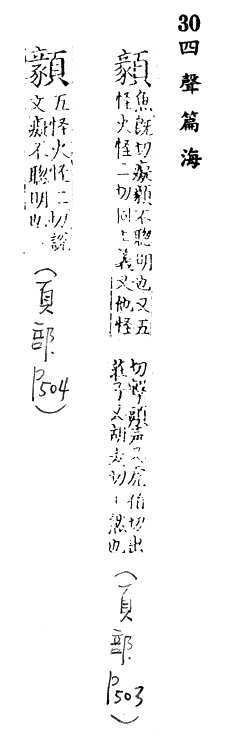 30四聲篇海
顡
魚既切癡顡不聰明也又五
怪火怪二切同上義又他怪
切頭声又虎伯切出
莊子又切也
（頁部P503）
顡
五怪火怪二切說
文癡不聰明也
（頁部P504）